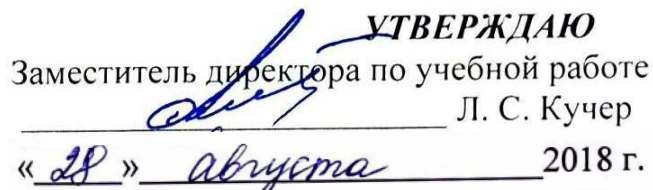 УТВЕРЖДАЮ
Заместитель директора по учебной работе
Л. С. Кучер
« 28 » августа 2018 г.